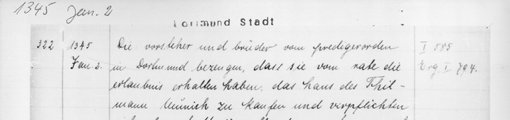 1345 Jan. 2
Dortmund Stadt
322 1345 Die vorsteher und brüder vom predigerorden I 585
Jan 2. in Dortmund bezeugen, dass sie vom rate die Erg I 794.
erlaubnis erhalten haben, das haus des Thil-
mann Münich zu kaufen und verpflichten